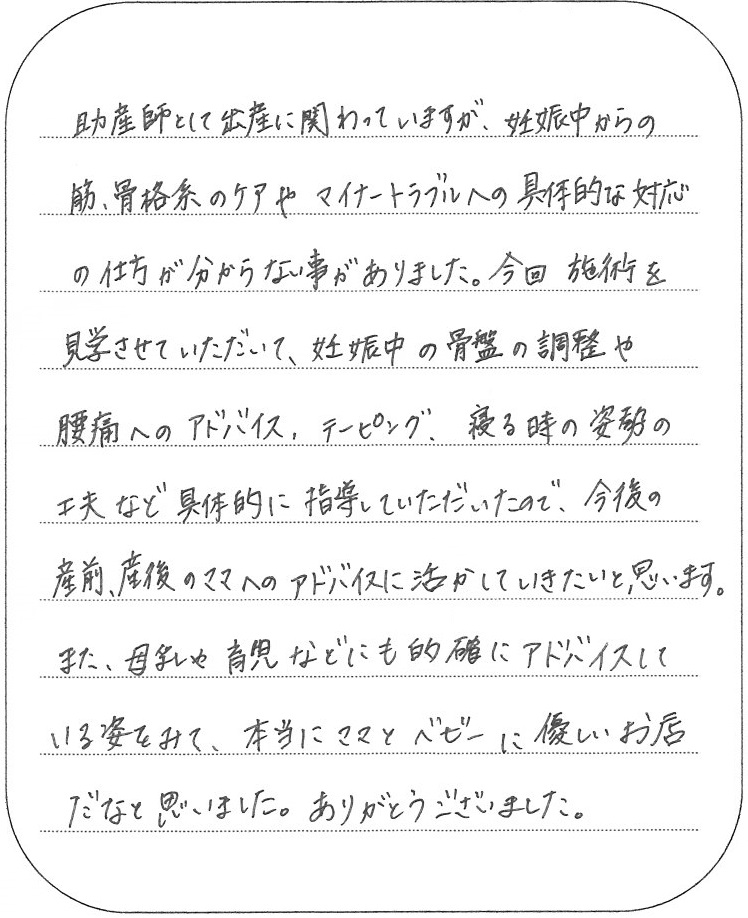 助産師として出産に関わっていますが、妊娠中からの
筋、骨格系のケアや マイナートラブルへの具体的な対応
の仕方が分からない事がありました。今回 施術を
見学させていただいて、妊娠中の骨盤の調整や
腰痛へのアドバイス、テーピング、寝る時の姿勢の
工夫など具体的に指導していただいたので、今後の
産前、産後のママへのアドバイスに活かしていきたいと思います。
また、母乳や育児などにも的確にアドバイスして
いる姿をみて、本当にママとベビーに優しいお店
だなと思いました。ありがとうございました。